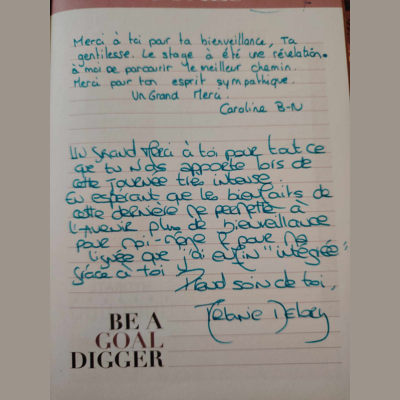 Merci à toi pour ta bienveillance, Ta
gentilesse. Le stage à été une révélation.
à moi de parcourir le meilleur chemin.
Merci pour ton esprit sympathique.
Un Grand Merci.
Caroline B-N
Un Grand Merci à toi pour tout ce
que tu m'as apporté lors de
cette journée très intense.
En espérant que les bienfaits de
cette dernière me permette à
l'avenir plus de bienveillance
pour moi-même & pour ma
lignée que j'ai enfin "intégrée"
Grâce à toi
Prend soin de toi,
BE A
GOAL
DIGGER